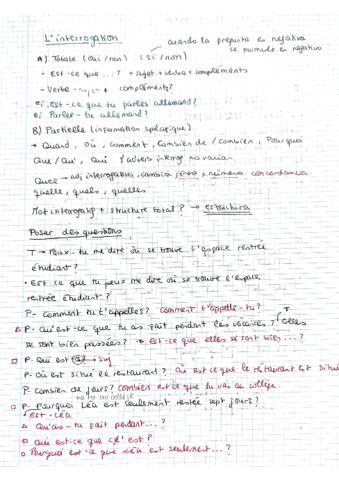 L'interrogation
cuando la pregunta es negativa
se formula en negativo
A) Totale (Oui / non) (Si / non)
- Est-ce que ...? + sujet + verbe + compléments
- Verbe - suj + compléments?
ej. Est-ce que tu parles allemand?
ej Parles-tu allemand?
B) Partielle (information spécifique)
→ Quand, Où, Comment, Combien de / combien, Pourquoi
Que / Qu', Qui } advers interrog no varian
Quel → adj interrogatif, cambia género, número concordancia
quelle, quels, quelles
Mot interrogatif + structure total? → estructura
Poser des questions
T → Peux-tu me dire où se trouve l'espace rentrée
étudiant?
• Est ce que tu peux me dire où se trouve l'espace
rentrée étudiant?
P- Comment tu t'appelles? Comment t'appelle-tu?
△ P- Qu'est-ce que tu as fait pendant les vacances? Elles
T
se sont bien passées? → Est-ce que elles se sont bien ...?
□ P- Qui est → suj
P- Où est situé le restaurant? Où est ce que le restaurant est situé
P- Combien de jours? Combien est ce que tu vas au collège
□ P- Pourquoi Léa est seulement restée sept jours?
est-Léa
△ Qu'as-tu fait pendant...?
□ Qui est-ce que c'est?
○ Pourquoi est-ce que Léa est seulement...?